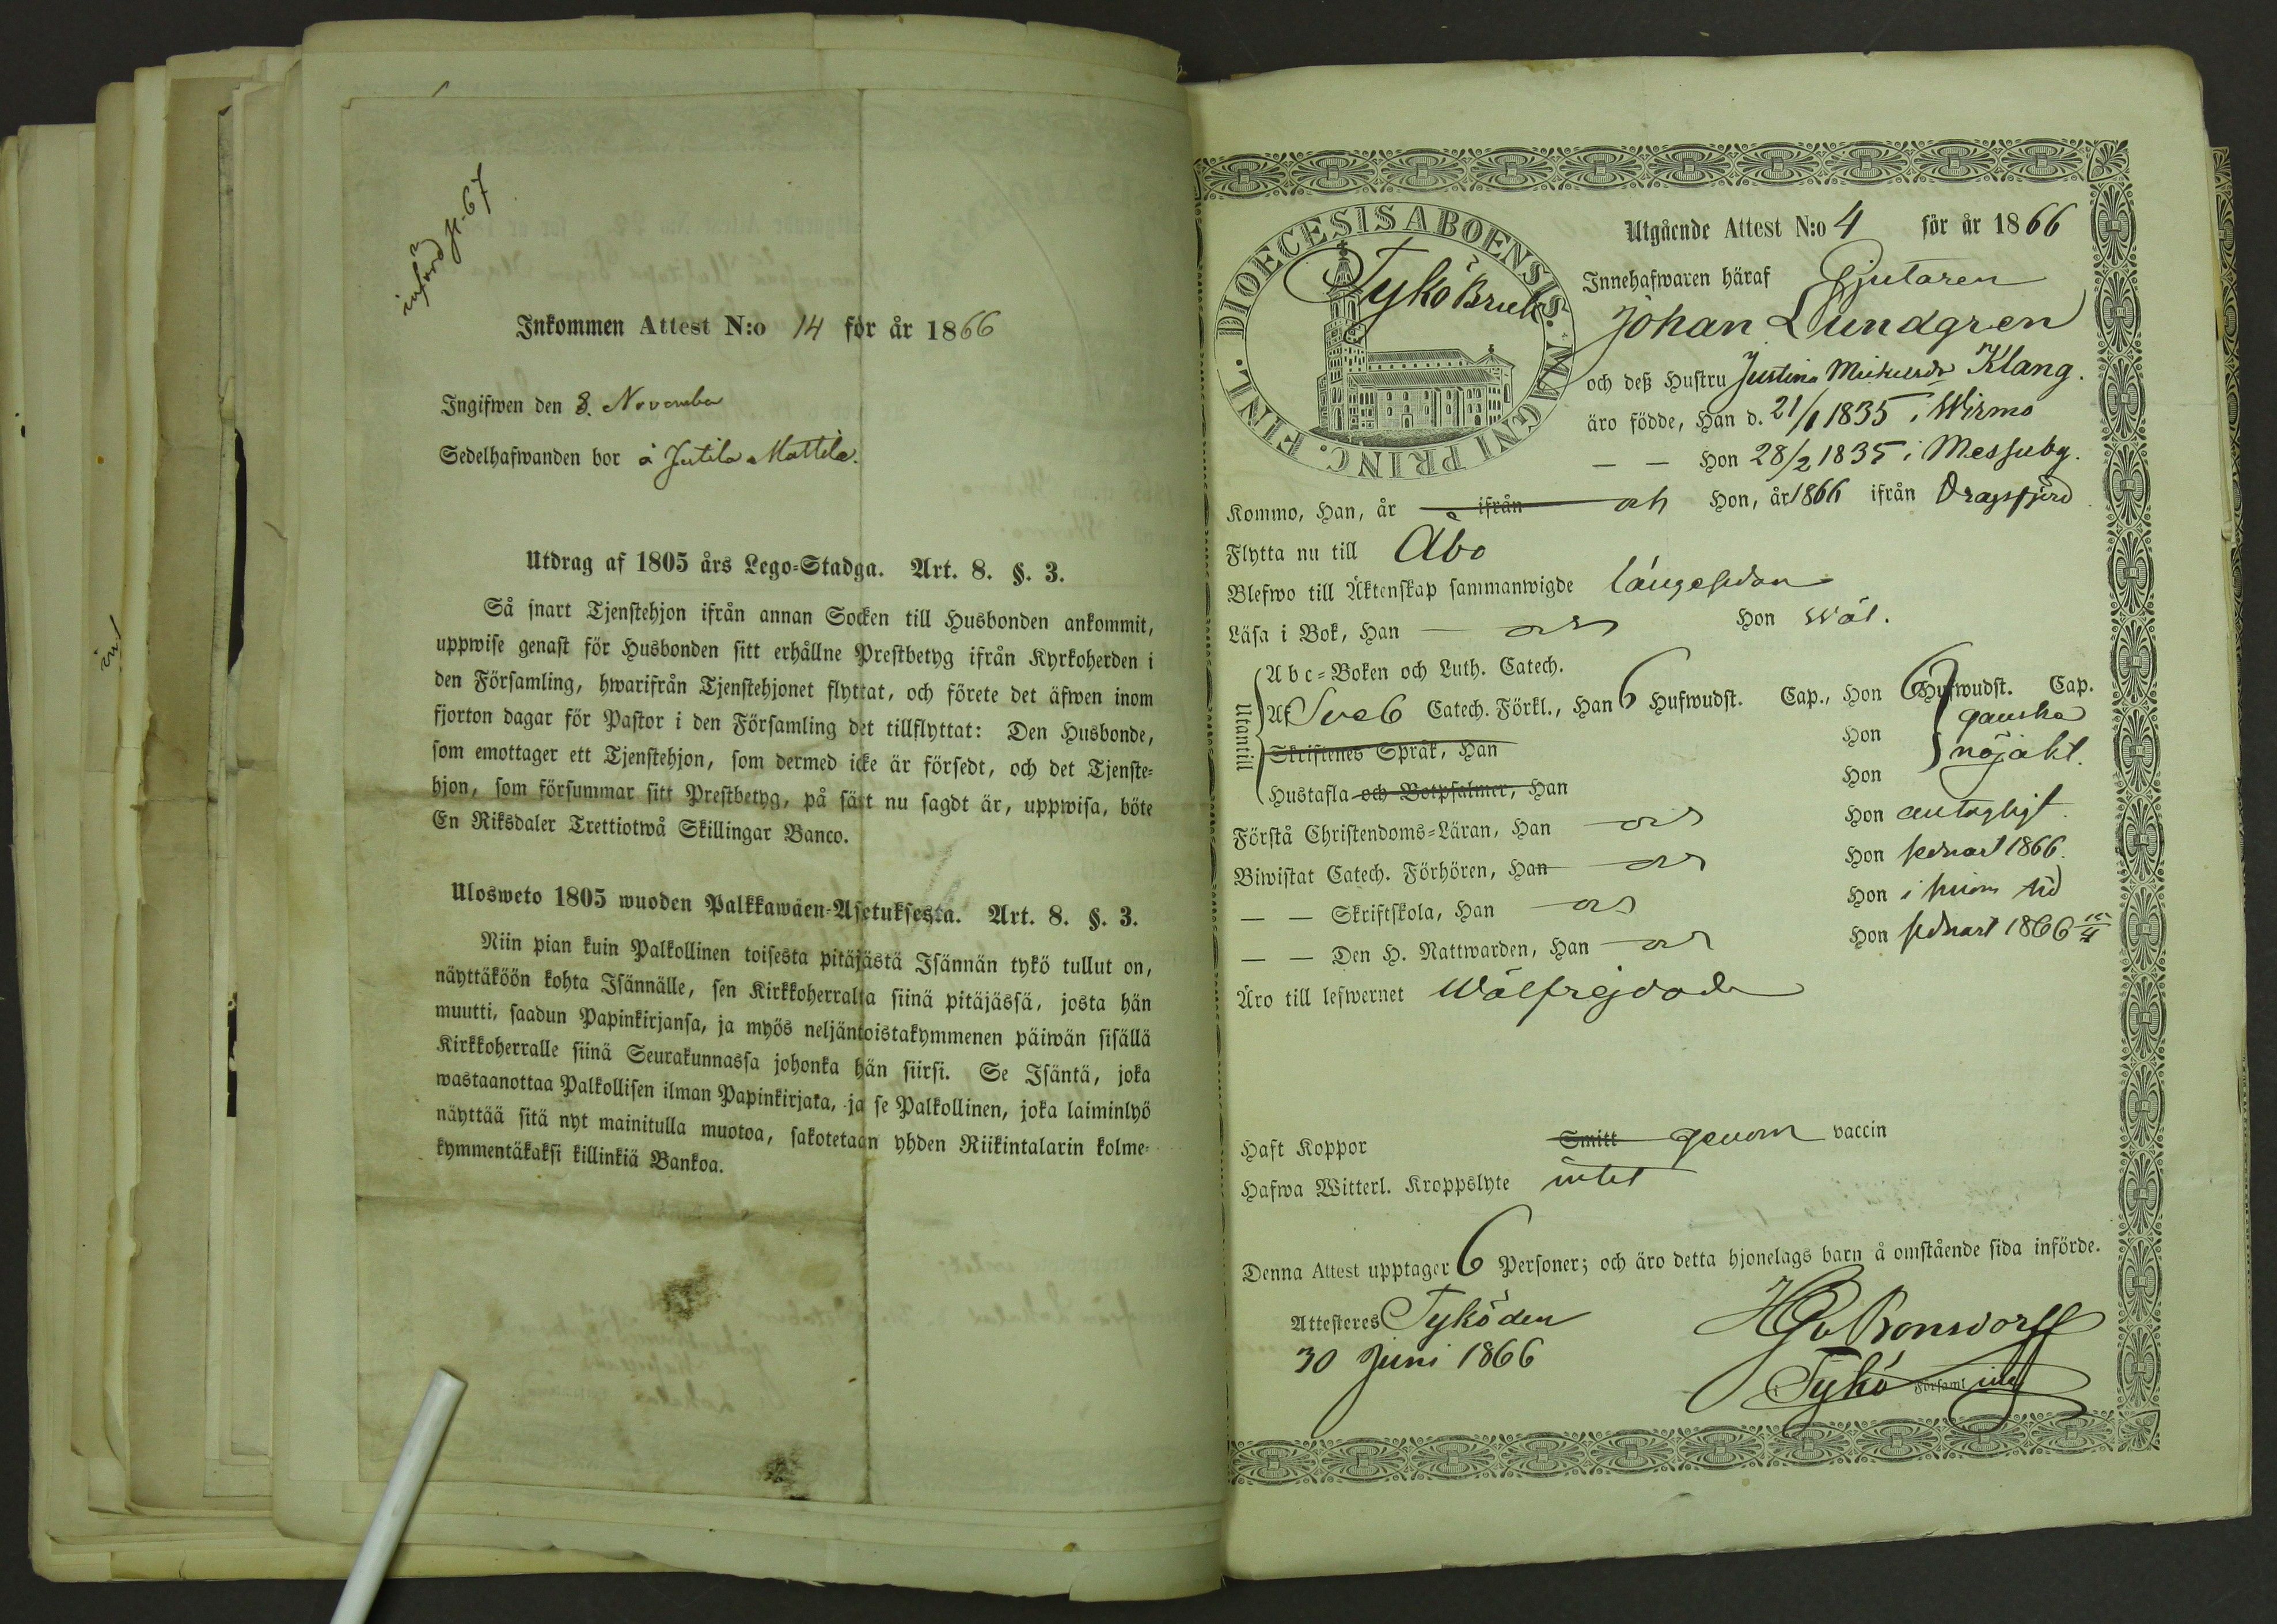 införd p. 67
Inkommen Attest N:o 14 för år 1866
Ingifwen den 8. November
Sedelhafwanden bor å Jutila Mattila.
Utdrag af 1805 års Lego-Stadga. Art. 8. §. 3.
Så snart Tjenstehjon ifrån annan Socken till Husbonden ankommit,
uppwise genast för Husbonden sitt erhållne Prestbetyg ifrån Kyrkoherden i
den Församling, hwarifrån Tjenstehjonet flyttat, och förete det äfwen inom
fjorton dagar för Pastor i den Församling det tillflyttat: Den Husbonde,
som emottager ett Tjenstehjon, som dermed icke är försedt, och det Tjenste-
hjon, som försummar sitt Prestbetyg, på sätt nu sagdt är, uppwisa, böte
En Riksdaler Trettiotwå Skillingar Banco.
Ulosweto 1805 wuoden Palkkawäen-Asetuksesta. Art. 8. §. 3.
Niin pian kuin Palkollinen toisesta pitäjästä Isännän tykö tullut on,
näyttäköön kohta Isännälle, sen Kirkkoherralta siinä pitäjässä, josta hän
muutti, saadun Papinkirjansa, ja myös neljäntoistakymmenen päiwän sisällä
Kirkkoherralle siinä Seurakunnassa johonka hän siirsi. Se Isäntä, joka
wastaanottaa Palkollisen ilman Papinkirjata, ja se Palkollinen, joka laiminlyö
näyttää sitä nyt mainitulla muotoa, sakotetaan yhden Riikintalarin kolme-
kymmentäkaksi killinkiä Bankoa.
DIOECESIS ABOENSIS. MAGNI PRINC. FINL.
Tykö Bruk
Utgående Attest N:o 4 för år 1866
Innehafwaren häraf Gjutaren
Johan Lundgren
och deß Hustru Justina Mickelsdr Klang.
äro födde, Han d. 21/1 1835 i Wirmo
— — Hon 28/2 1835 i Messuby.
Kommo, Han, år ifrån och Hon, år 1866 ifrån Dragsfjerd
Flytta nu till Åbo
Blefwo till Äktenskap sammanwigde längesedan
Läsa i Bok, Han och Hon wäl.
Utantill
Abc-Boken och Luth. Catech.
Af Sveb Catech. Förkl., Han 6 Hufwudst. Cap., Hon 6 Hufwudst. Cap.
Skriftenes Språk, Han Hon ganska
Hustafla och Botpsalmer, Han Hon nöjakt.
Förstå Christendoms-Läran, Han och Hon antagligt.
Biwistat Catech. Förhören, Han och Hon sednast 1866.
— — Skriftskola, Han och Hon i sinom tid
— — Den H. Nattwarden, Han och Hon sednast 1866
Äro till lefwernet Wälfrejdade
Haft Koppor Smitt genom vaccin
Hafwa Witterl. Kroppslyte intet
Denna Attest upptager 6 Personer; och äro detta hjonelags barn å omstående sida införde.
Attesteres Tykö den
30 Juni 1866
Bonsdorff
i Tykö Församl